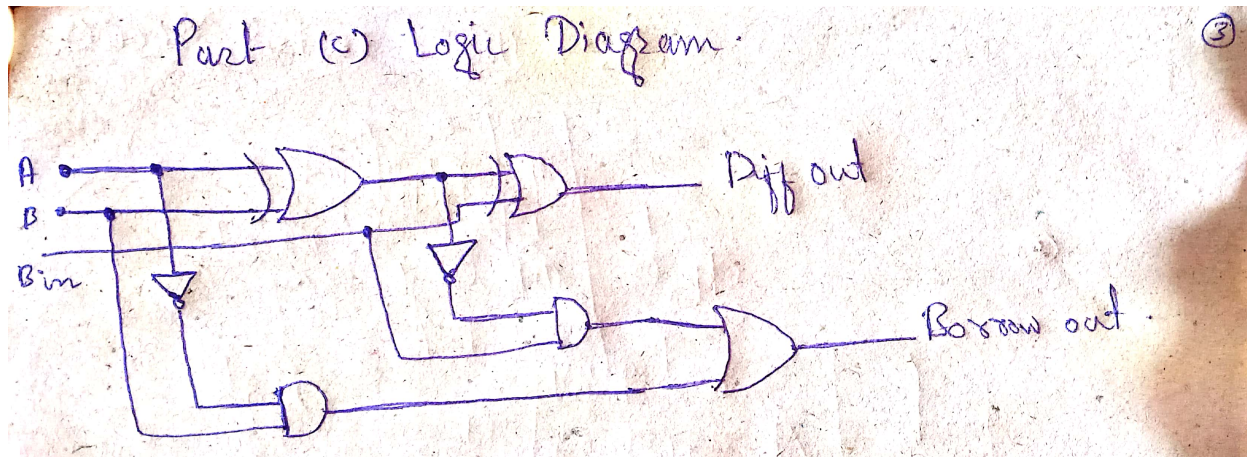 Part (c) Logic Diagram.
3
A
B
Bin
Diff out
Borrow out.